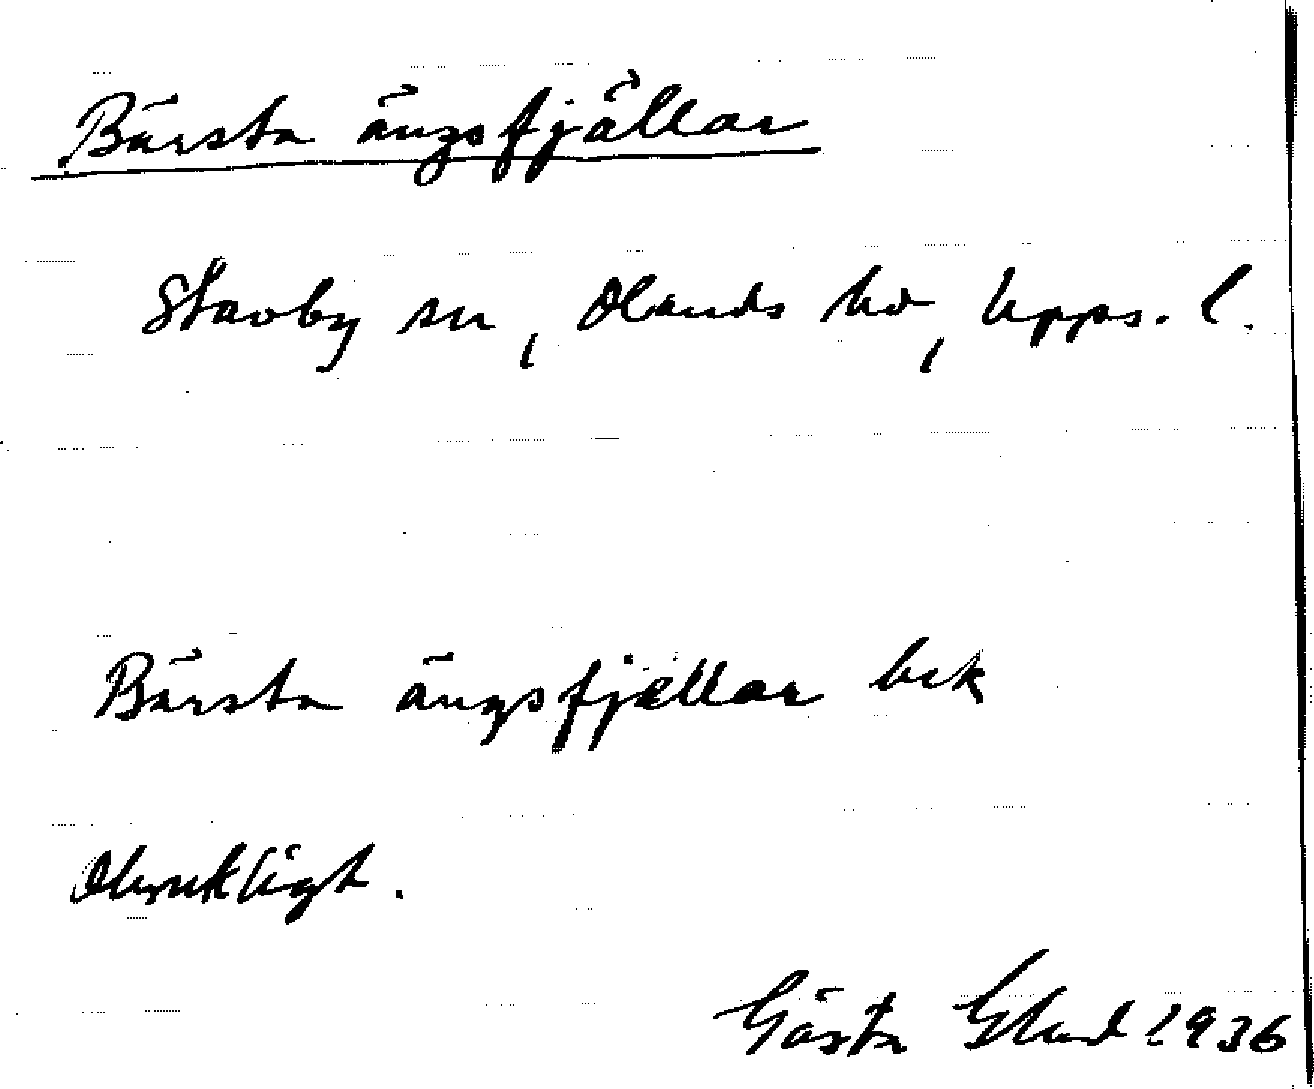 Bärsta ängsfjällar
Stavby sn, Olands hd, Upps. l.
Bärsta ängsfjällar bek
Obrukligt.
Gösta 1936